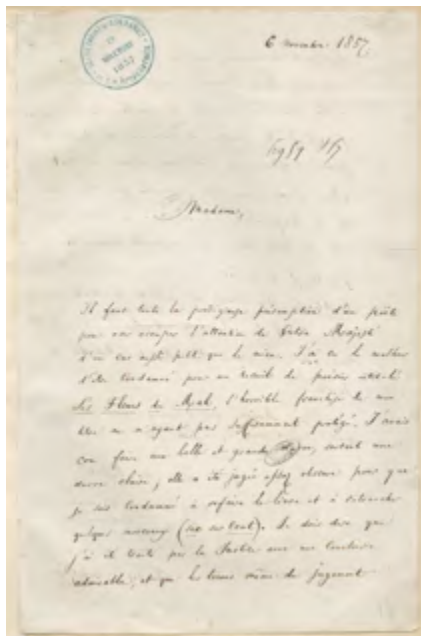 6 novembre 1857.
Madame,
Il faut toute la prodigieuse présomption d'un poète
pour oser occuper l'attention de Votre Majesté
d'un cas aussi petit que le mien. J'ai eu le malheur
d'être condamné pour un recueil de poésies intitulé
Les Fleurs du Mal, l'horrible franchise de mon
titre ne m'ayant pas suffisamment protégé. J'avais
cru faire une belle et grande œuvre, surtout une
œuvre claire; elle a été jugée assez obscure pour que
je sois condamné à refaire le livre et à retrancher
quelques morceaux (six sur cent). Je dois dire que
j'ai été traité par la Justice avec une courtoisie
admirable, et que les termes mêmes du jugement